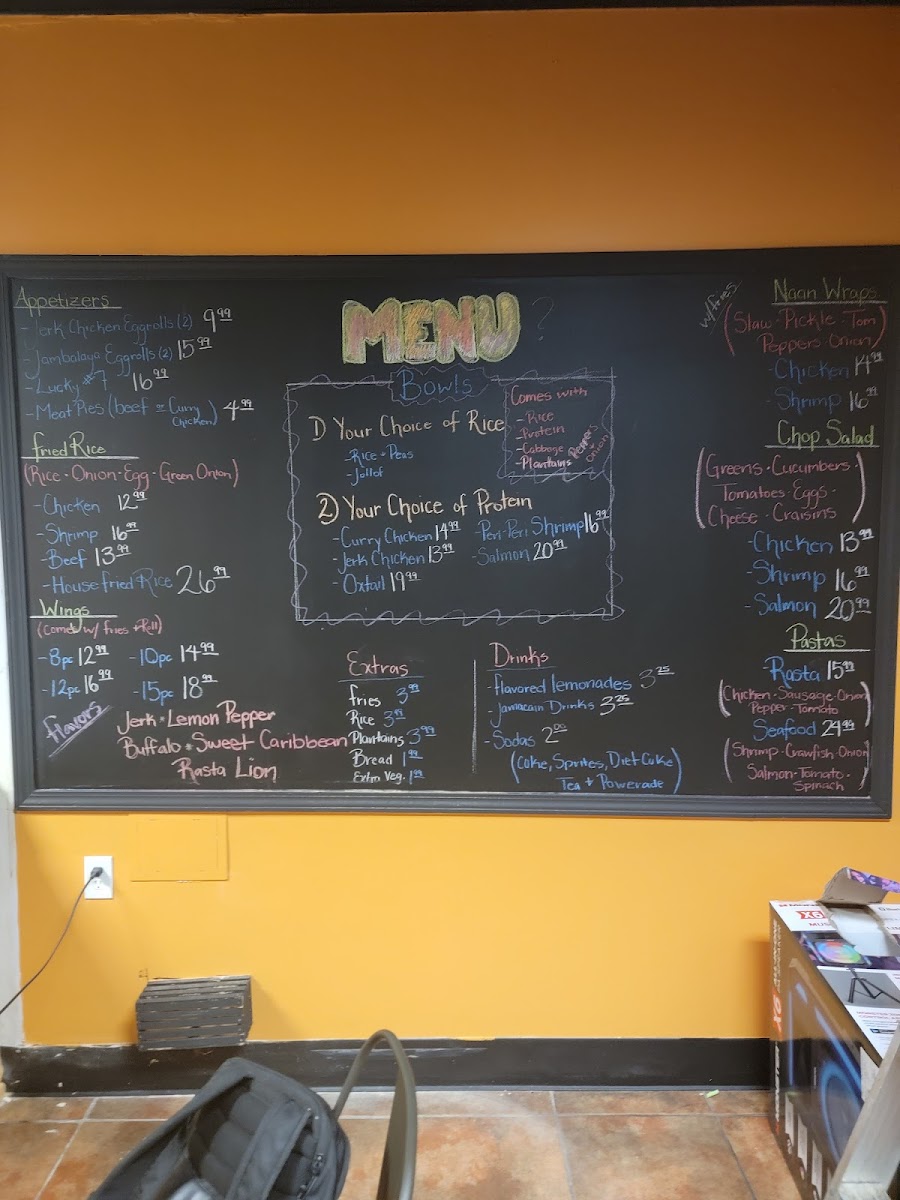 MENU
Appetizers
- Jerk Chicken Eggrolls (2) 9.99
- Jambalaya Eggrolls (2) 15.99
- Lucky #7 16.99
- Meat Pies (beef or Curry Chicken) 4.99
Fried Rice
(Rice · Onion · Egg · Green Onion)
- Chicken 12.99
- Shrimp 16.99
- Beef 13.99
- House fried Rice 26.99
Wings
(Comes w/ fries + Roll)
- 8pc 12.99 - 10pc 14.99
- 12pc 16.99 - 15pc 18.99
flavors
Jerk · Lemon Pepper
Buffalo · Sweet Caribbean
Rasta Lion
Bowls
Comes with
- Rice
- Protein
- Cabbage
- Plantains
Peppers
onion
1) Your Choice of Rice
- Rice + Peas
- Jollof
2) Your Choice of Protein
- Curry Chicken 14.99 - Peri-Peri Shrimp 16.99
- Jerk Chicken 13.99 - Salmon 20.99
- Oxtail 19.99
Extras
fries 3.99
Rice 3.99
Plantains 3.99
Bread 1.99
Extra Veg. 1.99
Drinks
- flavored lemonades 3.25
- Jamacain Drinks 3.25
- Sodas 2.00
(Coke, Sprites, Diet Coke
Tea + Powerade)
Naan Wraps
w/fries
(Slaw · Pickle · Tom
Peppers · Onion)
- Chicken 14.99
- Shrimp 16.99
Chop Salad
(Greens · Cucumbers ·
Tomatoes · Eggs ·
Cheese · Craisins)
- Chicken 13.99
- Shrimp 16.99
- Salmon 20.99
Pastas
Rasta 15.99
(Chicken · Sausage · Onion
Pepper · Tomato)
Seafood 24.99
(Shrimp · Crawfish · Onion
Salmon · Tomato ·
Spinach)
X6